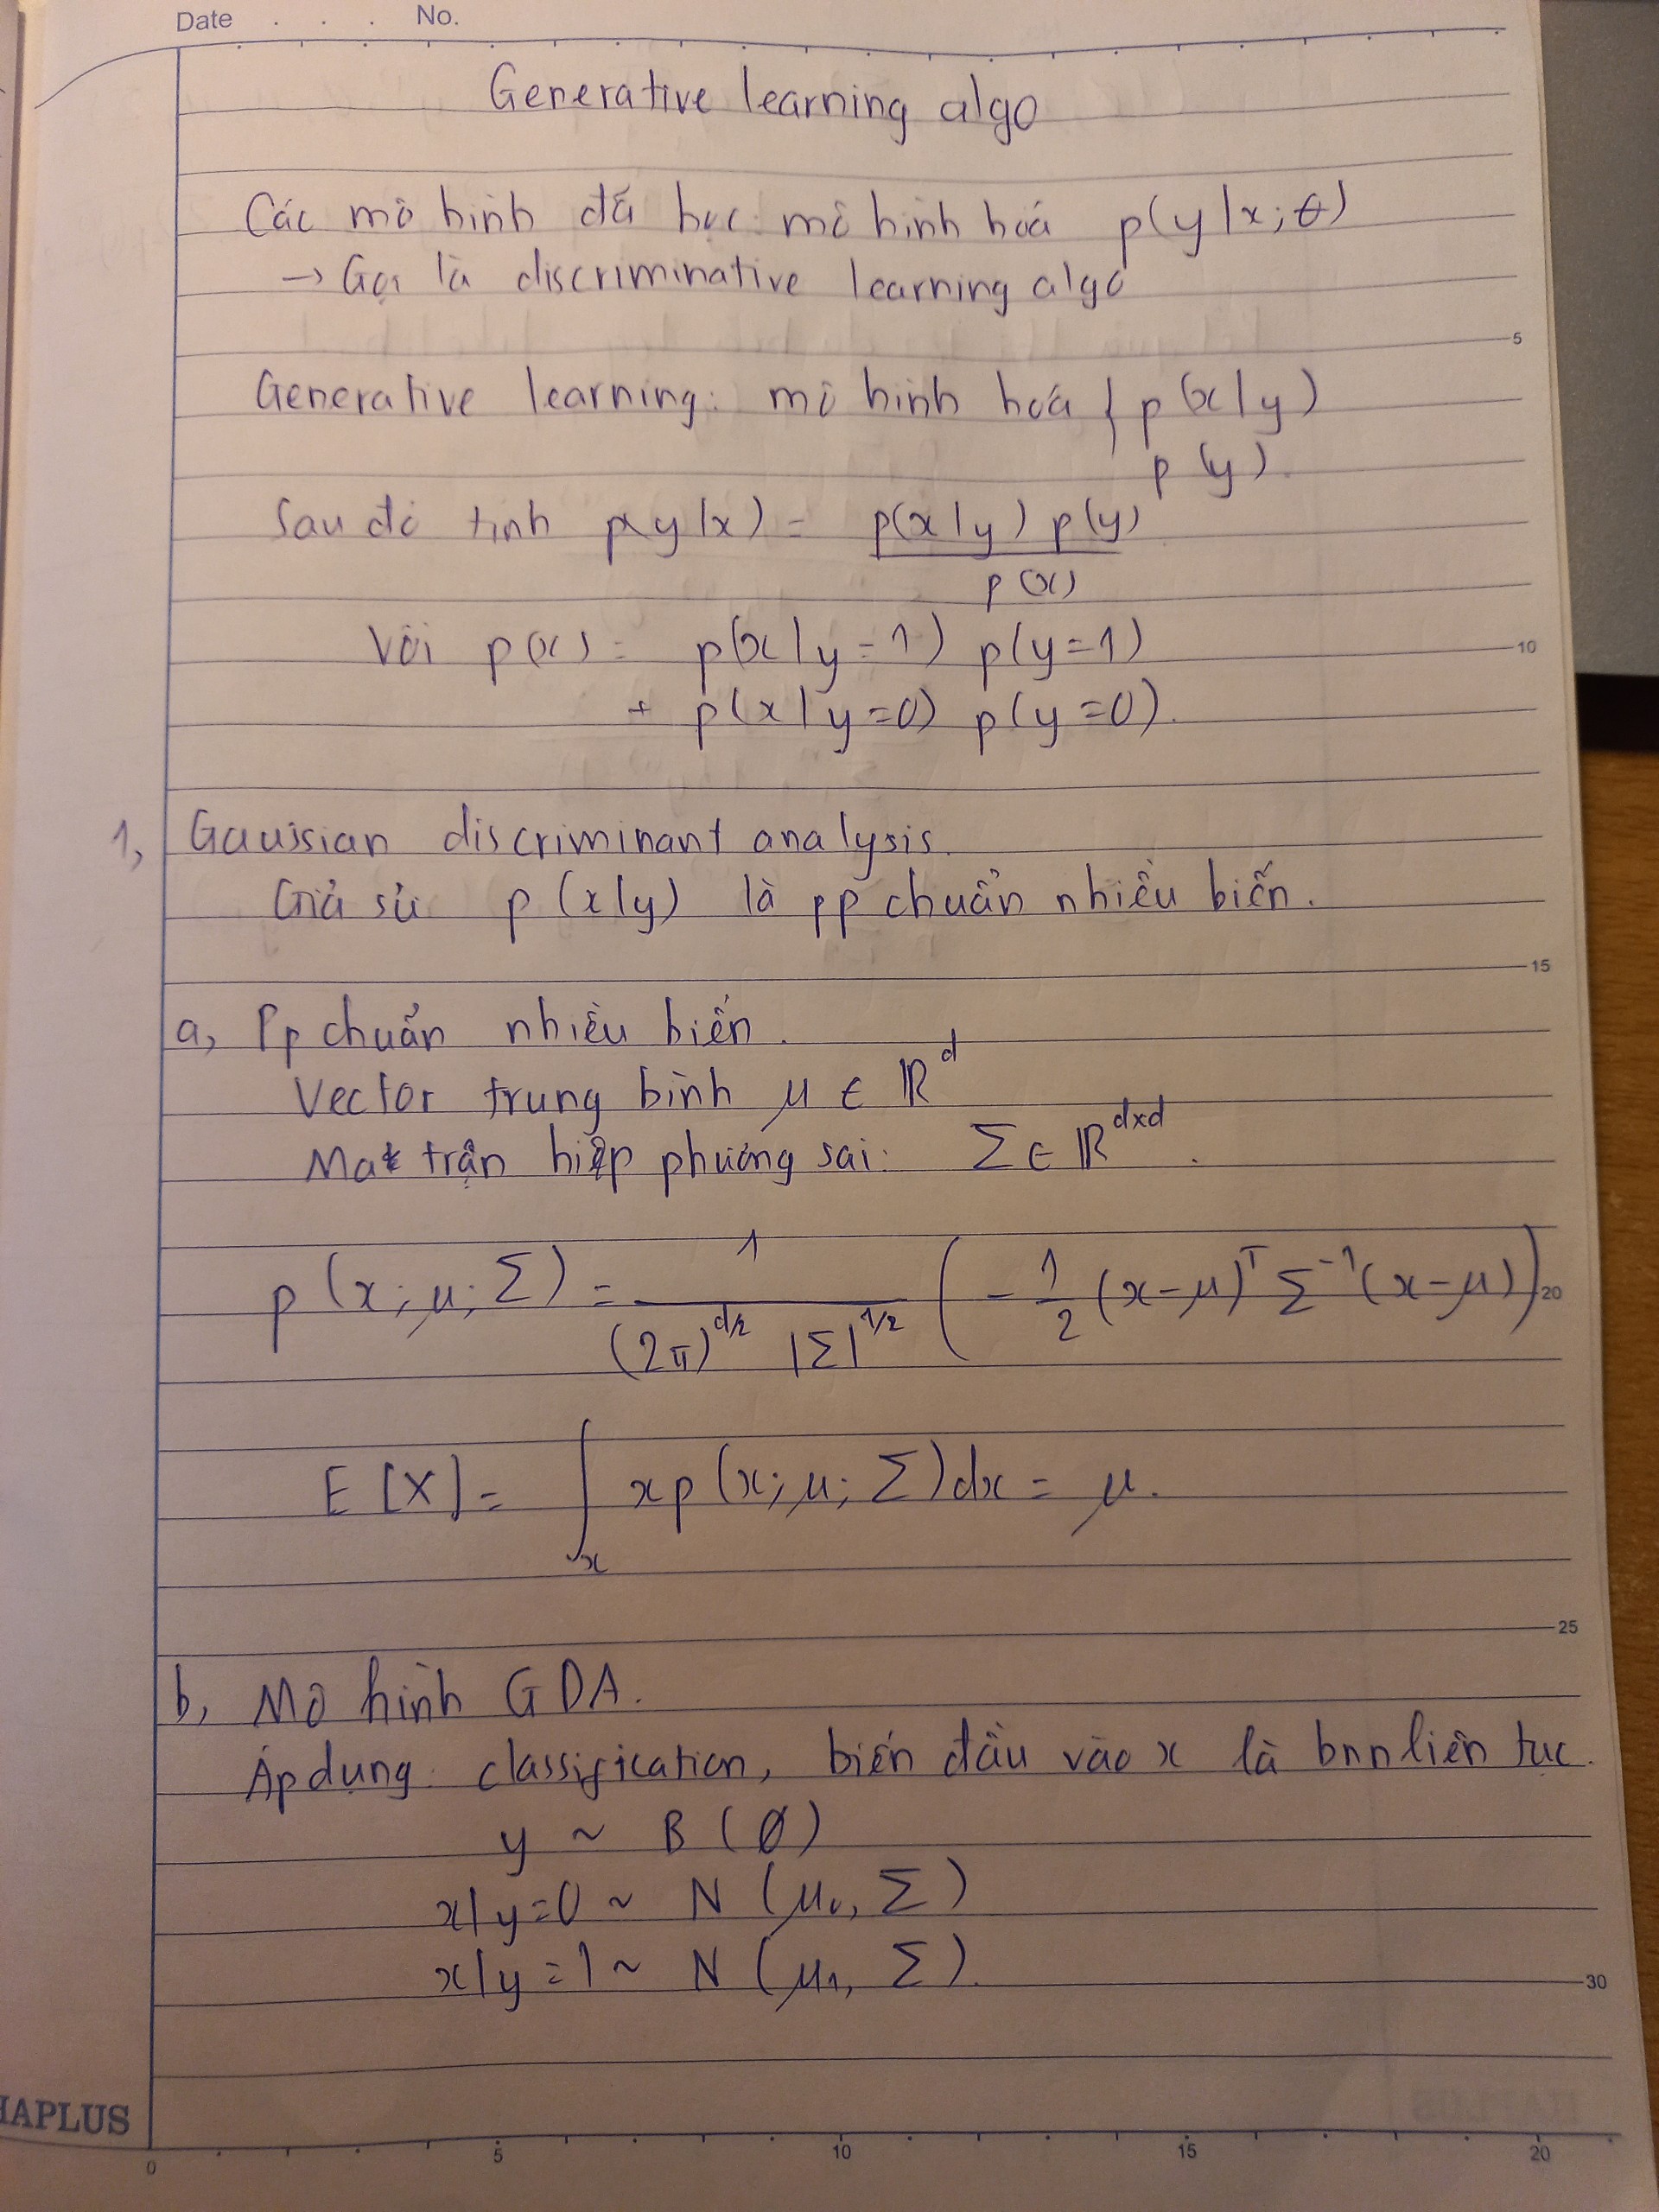 Date . . . No.
Generative learning algo
Các mô hình đã học: mô hình hoá p(y|x;θ)
→ Gọi là discriminative learning algo
5
Generative learning: mô hình hoá { p(x|y)
p(y).
Sau đó tính p(y|x) = p(x|y) p(y)
p(x)
Với p(x) = p(x|y=1) p(y=1)
10
+ p(x|y=0) p(y=0).
1, Gaussian discriminant analysis.
Giả sử p(x|y) là pp chuẩn nhiều biến.
15
a, Pp chuẩn nhiều biến.
Vector trung bình μ ∈ ℝ^d
Ma trận hiệp phương sai: Σ ∈ ℝ^{d×d}.
p(x; μ; Σ) = 1 / ((2π)^{d/2} |Σ|^{1/2}) (-1/2 (x-μ)^T Σ^{-1} (x-μ))
20
E[X] = ∫_x xp(x; μ; Σ)dx = μ.
25
b, Mô hình GDA.
Áp dụng: classification, biến đầu vào x là bnn liên tục.
y ~ B(ϕ)
x|y=0 ~ N(μ₀, Σ)
x|y=1 ~ N(μ₁, Σ).
30
HAPLUS
0 5 10 15 20